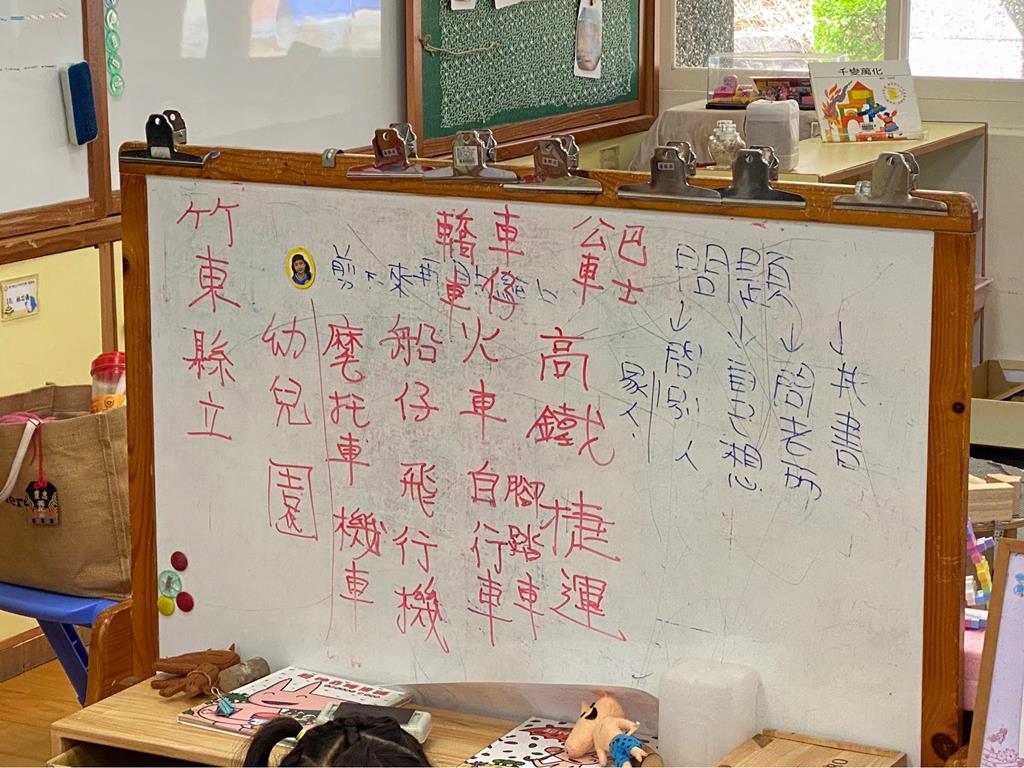 千變萬化
竹東縣立
幼兒園
剪下來再
摩托車
機車
船仔
飛行機
轎車
火車
自行車
腳踏車
公車
巴士
高鐵
捷運
問題
↓問別人
家人
↓自己想
↓問老師
↓找書